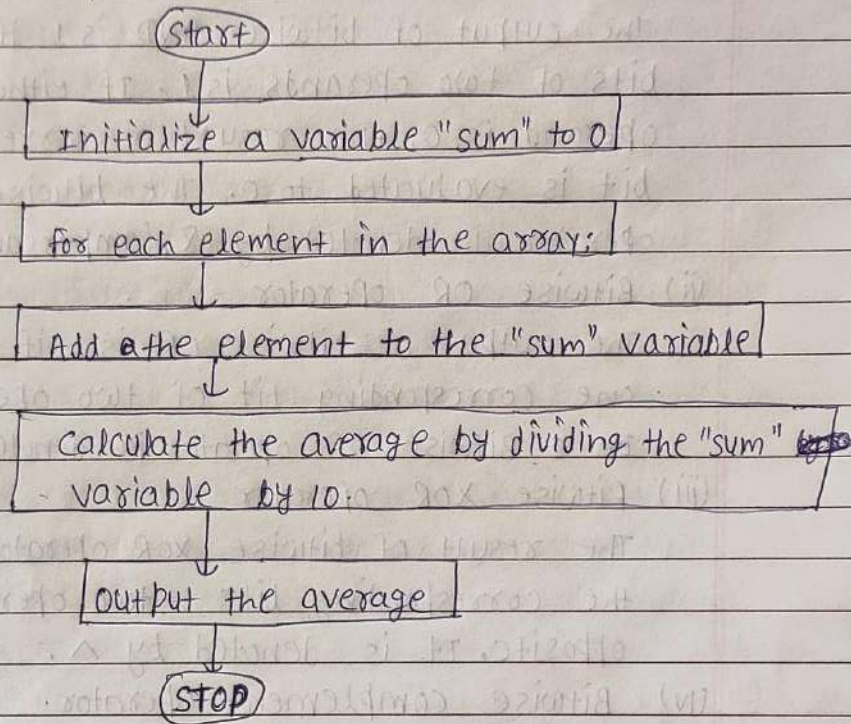 Start
Initialize a variable "sum" to 0
for each element in the array:
Add the element to the "sum" variable
Calculate the average by dividing the "sum"
variable by 10.
Output the average
STOP